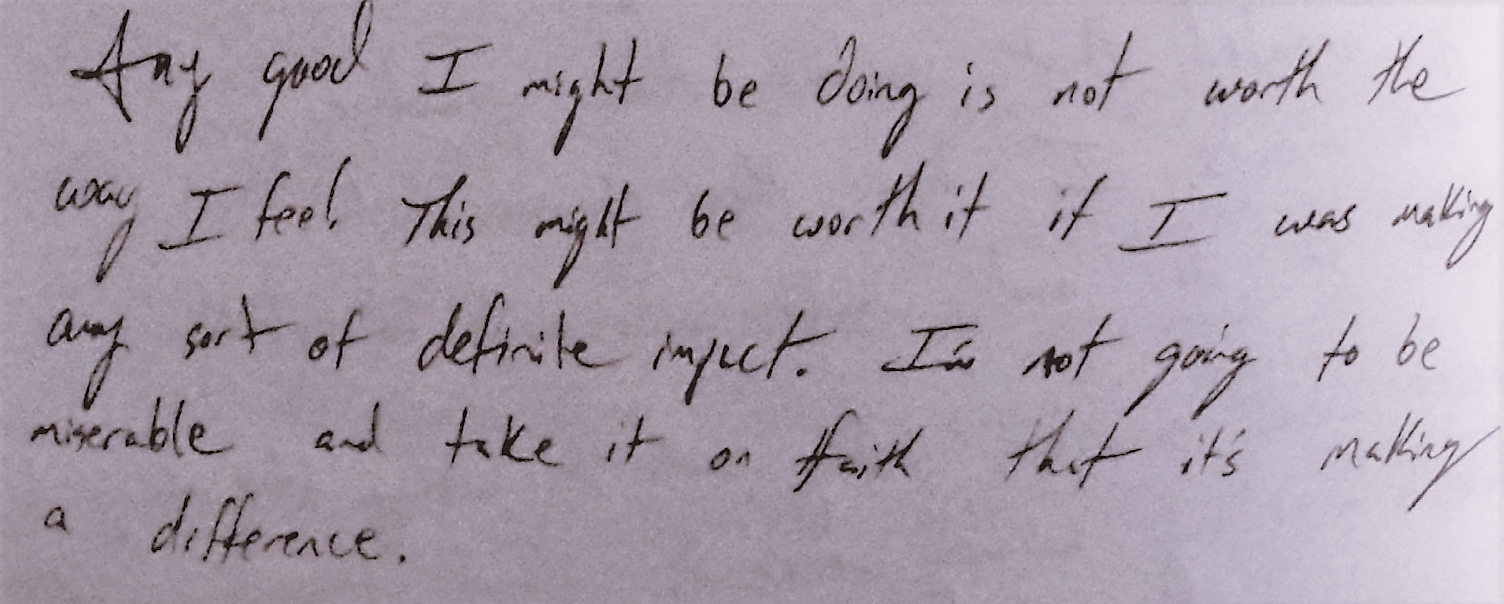 Any good I might be doing is not worth the
way I feel. This might be worth it if I was making
any sort of definite impact. I'm not going to be
miserable and take it on faith that it's making
a difference.